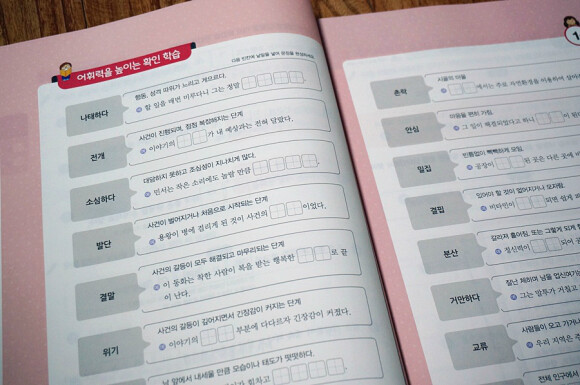 어휘력을 높이는 확인 학습
다음 빈칸에 낱말을 넣어 문장을 완성하세요.
나태하다
행동, 성격 따위가 느리고 게으르다.
할 일을 매번 미루다니 그는 정말
전개
사건이 진행되며, 점점 복잡해지는 단계
이야기의 가 내 예상과는 전혀 달랐다.
소심하다
대담하지 못하고 조심성이 지나치게 많다.
민서는 작은 소리에도 놀랄 만큼
발단
사건이 벌어지거나 처음으로 시작되는 단계
용왕이 병에 걸리게 된 것이 사건의 이었다.
결말
사건의 갈등이 모두 해결되고 마무리되는 단계
이 동화는 착한 사람이 복을 받는 행복한 로 끝
이 난다.
위기
사건의 갈등이 깊어지면서 긴장감이 커지는 단계
이야기의 부분에 다다르자 긴장감이 커졌다.
남 앞에서 내세울 만큼 모습이나 태도가 떳떳하다.
1
촌락
시골의 마을
에서는 주로 자연환경을 이용하여
안심
마음을 편히 가짐.
그 일이 해결되었다고 하니
밀집
빈틈없이 빽빽하게 모임.
공장이 된 곳은 다른 곳에
결핍
있어야 할 것이 없어지거나 모자람.
비타민이 되면 쉽게
분산
갈라져 흩어짐. 또는 그렇게 되게
정신력이 되어
거만하다
잘난 체하며 남을 업신여기
그는 말투가 거칠고
교류
사람들이 오고 가거나
우리 지역은
전체 인구에서